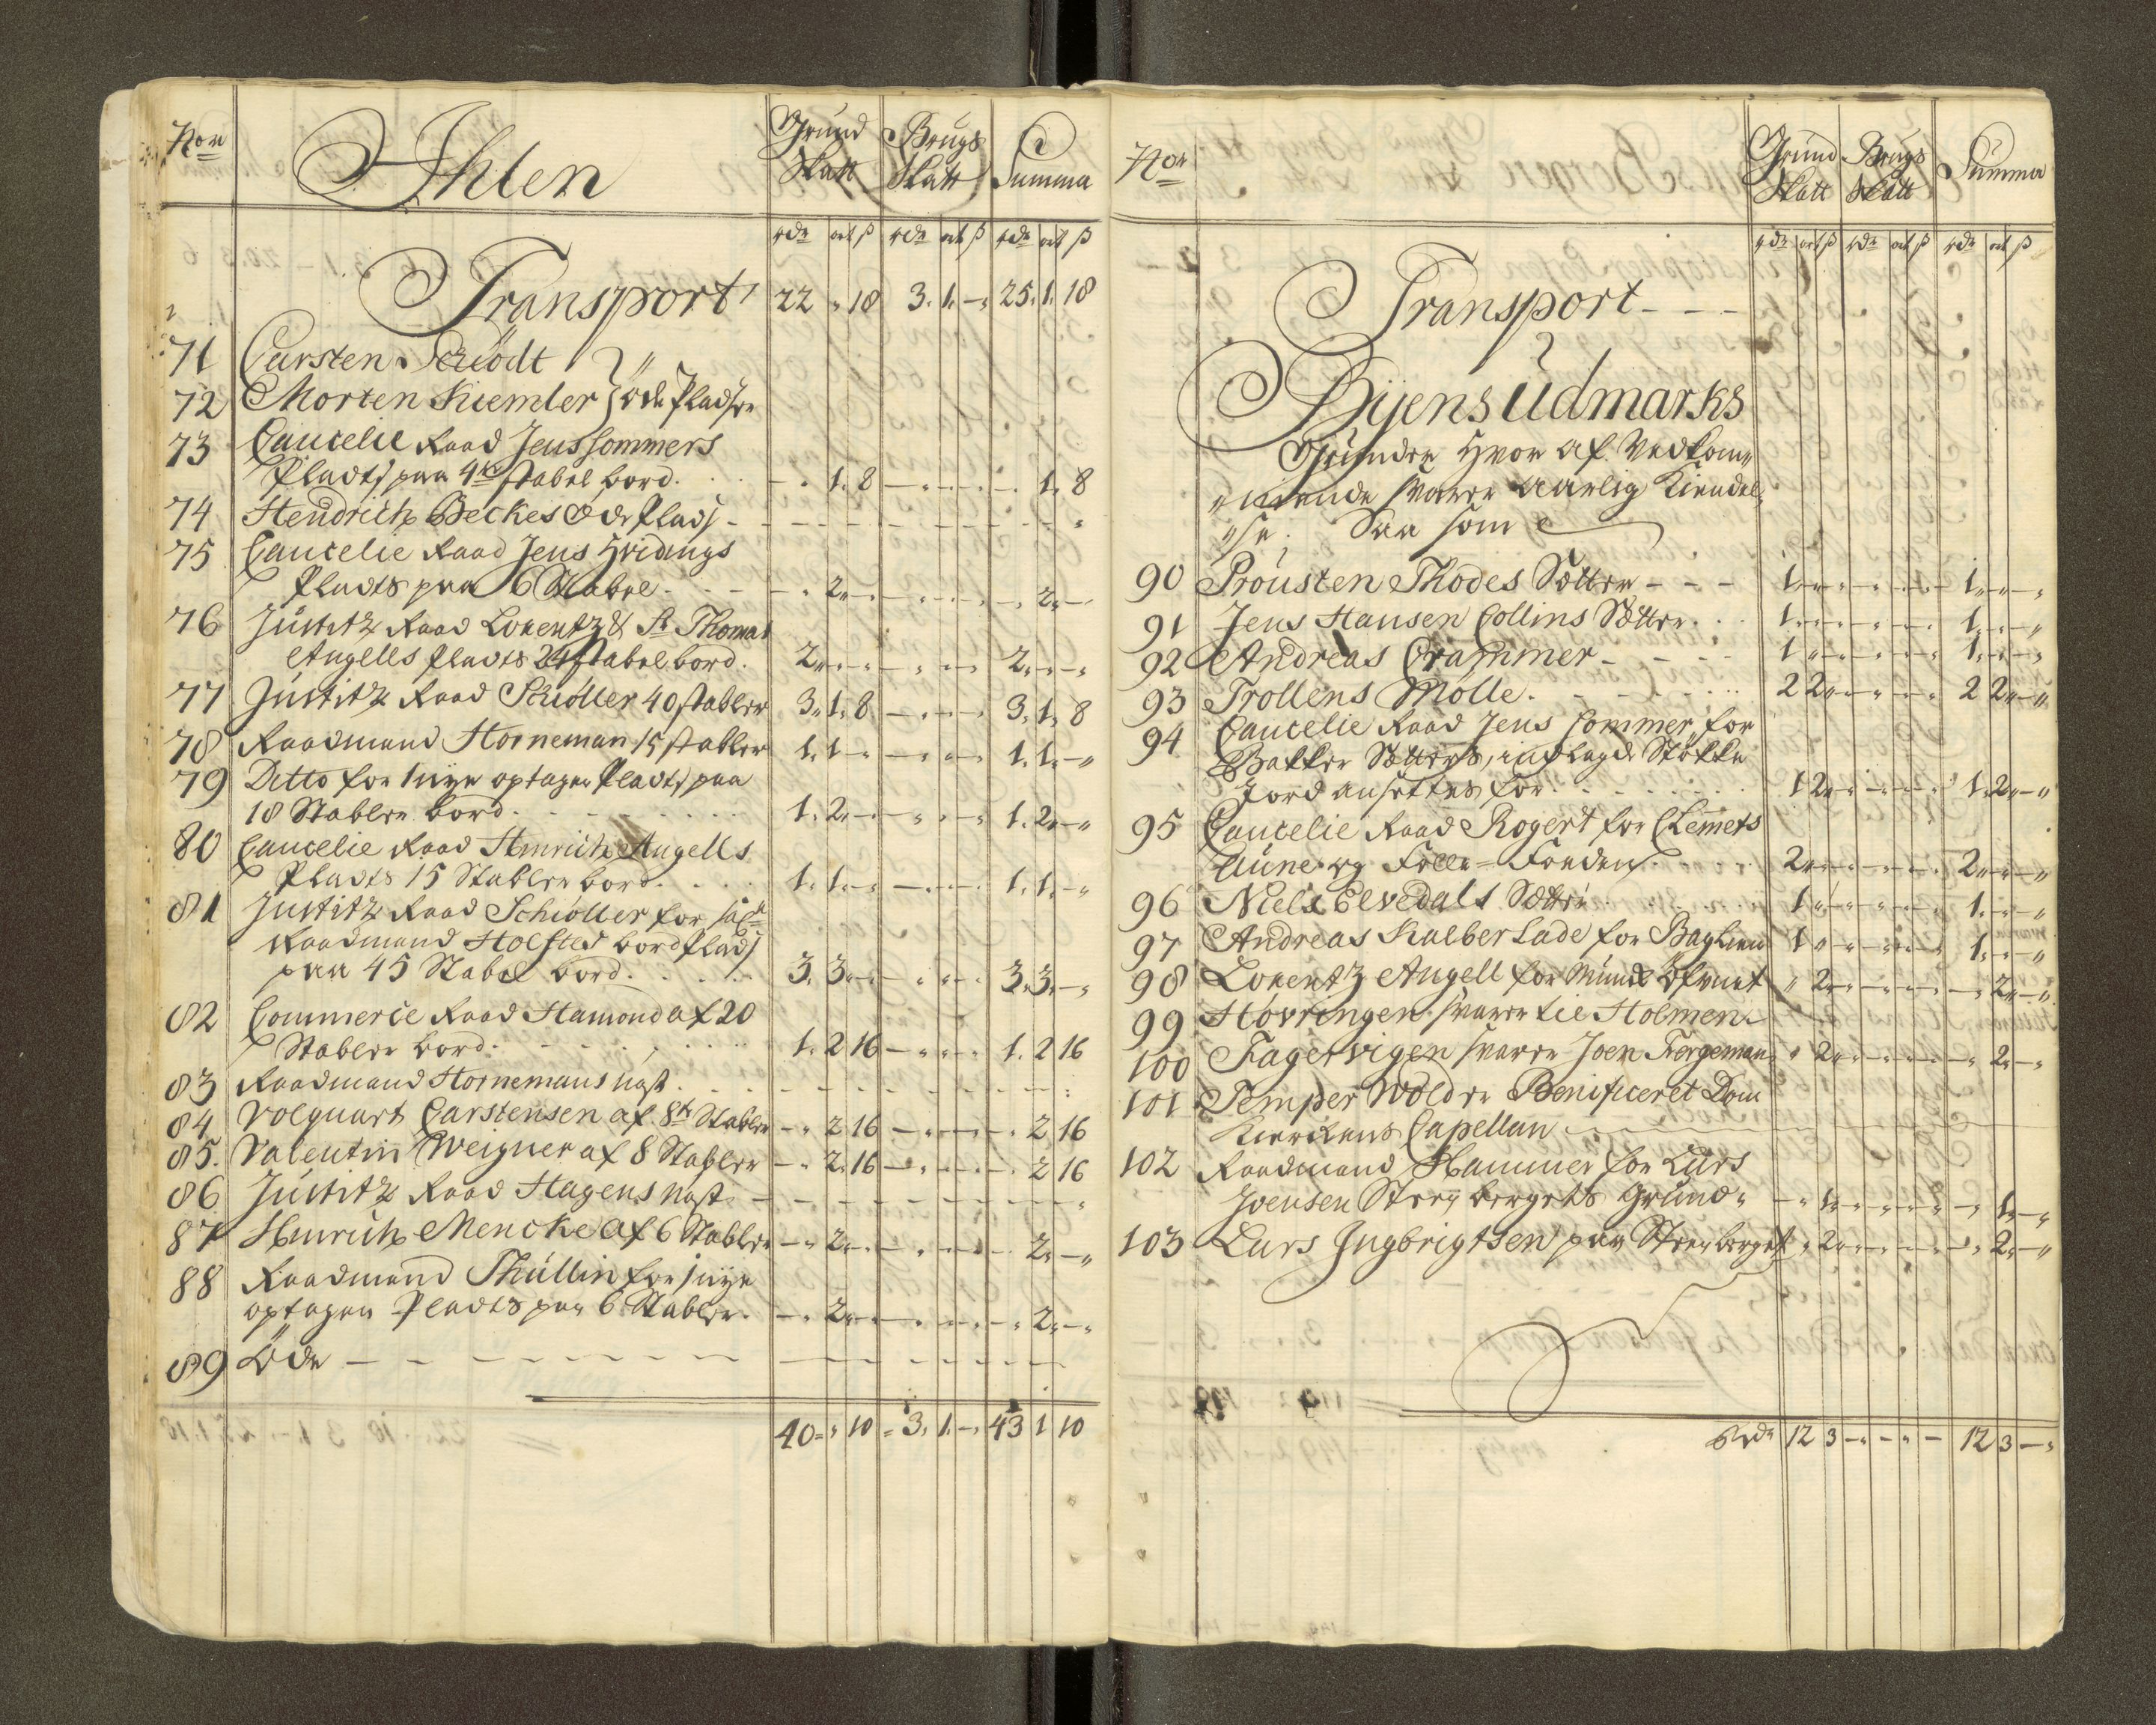 Nor
Ihlen
Grund Skatt
Brugs Skatt
Summa
rdr ort ß rdr ort ß rdr ort ß
Transport 22 " 18 3. 1. - " 25. 1. 18
71 Carsten Schiødt
72 Morten Kiemler } øde Pladser
73 Cancelie Raad Jens Sommers
Pladtz paa 4re stabel bord. - " 1. 8 - " - " - " 1. 8
74 Hendrich Beckes øde Plads - - -
75 Cancelie Raad Jens Hvidings
Pladts paa 6 Stabel - - " 2 " - " - " - " 2 " -
76 Justitz Raad Lorentz & Sr Thomas
Angells Pladts 24 stabel bord. 2 " - " - " - " - 2 " - "
77 Justitz Raad Schiøller 40 stabler 3 " 1. 8 - " - " - 3. 1. 8
78 Raadmand Horneman 15 stabler 1. 1 - " - " - 1. 1. - "
79 Ditto for 1 nye optagen Pladtz paa
18 Stabler bord. 1. 2 - " - " - 1. 2 " - "
80 Cancelie Raad Hinrich Angells
Pladts 15 Stabler bord. 1. 1. - " - " - 1. 1. - "
81 Justitz Raad Schiøller for
Raadmand Holsted bord Plads
paa 45 Stabel bord. 3. 3 - " - " - 3. 3. - "
82 Commerce Raad Hamond af 20
Stabler bord. 1. 2 16 - " - " - 1. 2 16
83 Raadmand Hornemans nøst - - -
84 Volquart Carstensen af 8te Stabler - " 2 16 - " - " - " 2 16
85. Valentin Weigner af 8 Stabler - " 2. 16 - " - " - 2 16
86 Justitz Raad Hagens nøst - - -
87 Hinrich Mencke af 6 Stabler - " 2 " - " - " - 2. - "
88 Raadmand Thüllin for 1 nye
optagen Pladts paa 6 Stabler. - " 2 " - " - " - " 2 " - "
89 Øde - - -
40 " 10 " 3. 1. - " 43 1 10
Nor
Grund Skatt
Brugs Skatt
Summa
rdr ort ß rdr ort ß rdr ort ß
Transport - - -
Byens Udmarks
Grunder Hvor af Vedkom"
"mende svarer aarlig Kiendel"
"se; Saa som
90 Prousten Thodes Sættre - - - 1. " - " - " - 1. " - "
91 Jens Hansen Collins Sættre. 1. " - " - " - 1. " - "
92 Andreas Crammer - - - 1 " - " - " - 1. " - "
93 Trollens Mølle. - - - 2 2 " - " - " - 2 2 " - "
94 Cancelie Raad Jens Sommer, for
Bakke Sætters, indlagde Støkke
Jord ansettes for - - - 1 2 " - " - " - 1. 2 " - "
95 Cancelie Raad Rogert for Clemets
Aune og Fille = Fonden. 2 " - " - " - 2 " - "
96 Niels Elvedals Sættre 1 " - " - " - 1. " - "
97 Andreas Kalber Lade for Baglien 1 " - " - " - 1. " - "
98 Lorentz Angell for " 2 " - " - " - " 2 " - "
99 Høvringen svarer til Holmen
100 Fagervigen svarer Joen Bergeman " 2 " - " - " - " 2. - "
101 Temper Wolden Benificeret Dom
Kierckens Capellan - - -
102 Raadmand Hammer for Lars
Joensen Steenbergets Grund " - " 1. - " - " - " 1. - "
103 Lars Ingbrigtsen paa Steenberget " 2 " - " - " - " 2. - "
rdr 12 3 - " - " - 12 3 - "